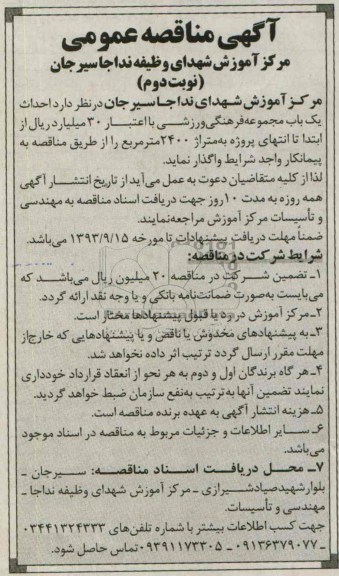 آگهی مناقصه عمومی
مرکز آموزش شهدای وظیفه نداجا سیرجان
(نوبت دوم)
مرکز آموزش شهدای نداجا سیرجان در نظر دارد احداث
یک باب مجموعه فرهنگی ورزشی با اعتبار ۳۰ میلیارد ریال از
ابتدا تا انتهای پروژه به متراژ ۲۴۰۰ مترمربع را از طریق مناقصه به
پیمانکار واجد شرایط واگذار نماید.
لذا از کلیه متقاضیان دعوت به عمل می‌آید از تاریخ انتشار آگهی
همه روزه به مدت ۱۰ روز جهت دریافت اسناد مناقصه به مهندسی
و تأسیسات مرکز آموزش مراجعه نمایند.
ضمناً مهلت دریافت پیشنهادات تا مورخه ۱۳۹۳/۹/۱۵ می‌باشد.
شرایط شرکت در مناقصه:
۱ـ تضمین شرکت در مناقصه ۲۰ میلیون ریال می‌باشد که
می‌بایست به‌صورت ضمانت‌نامه بانکی و یا وجه نقد ارائه گردد.
۲ـ مرکز آموزش در رد یا قبول پیشنهادها مختار است.
۳ـ به پیشنهادهای مخدوش یا ناقص و یا پیشنهادهایی که خارج از
مهلت مقرر ارسال گردد ترتیب اثر داده نخواهد شد.
۴ـ هر گاه برندگان اول و دوم به هر نحو از انعقاد قرارداد خودداری
نمایند تضمین آنها به ترتیب به نفع سازمان ضبط خواهد گردید.
۵ـ هزینه انتشار آگهی به عهده برنده مناقصه است.
۶ـ سایر اطلاعات و جزئیات مربوط به مناقصه در اسناد موجود
می‌باشد.
۷ـ محل دریافت اسناد مناقصه: سیرجان ـ
بلوار شهید صیاد شیرازی ـ مرکز آموزش شهدای وظیفه نداجا ـ
مهندسی و تأسیسات.
جهت کسب اطلاعات بیشتر با شماره تلفن‌های ۰۳۴۴۱۳۲۴۳۳۳
ـ ۰۹۱۳۶۳۷۹۰۷۷ ـ ۰۹۳۹۱۱۷۳۳۰۵ تماس حاصل شود.